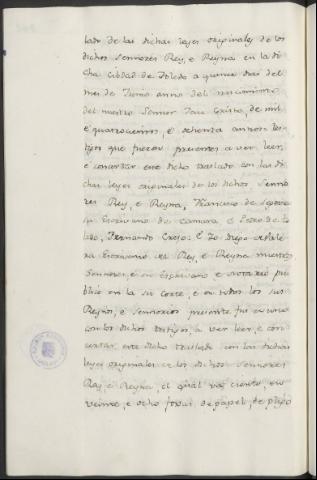 lado de las dichas leyes originales de los
dichos Sennores Rey, e Reyna en la di
cha Cibdad de Toledo a quince dias del
mes de Junio anno del nascimiento
del nuestro Sennor Jesu Cristo, de mil
e quatrocientos, e ochenta annos. Tes-
tigos que fueron presentes a ver leer,
e concertar este dicho traslado con las di
chas leyes originales de los dichos Senno
res Rey, e Reyna, Francisco de Segovia
su Escrivano de Camara e Pedro de To
ledo, Fernando Crespo: E Yo Diego
Escrivano del Rey, e Reyna nuestros
Sennores, e su Escrivano e notario pu
blico en la su corte, e en todos los sus
Reynos, e Sennorios presente fui en uno
con los dichos testigos, a ver leer, e con
certar este dicho traslado con las dichas
leyes originales de los dichos Sennores
Rey, e Reyna, el qual vas ciento, e
veinte, e ocho fojas de papel, de pliego